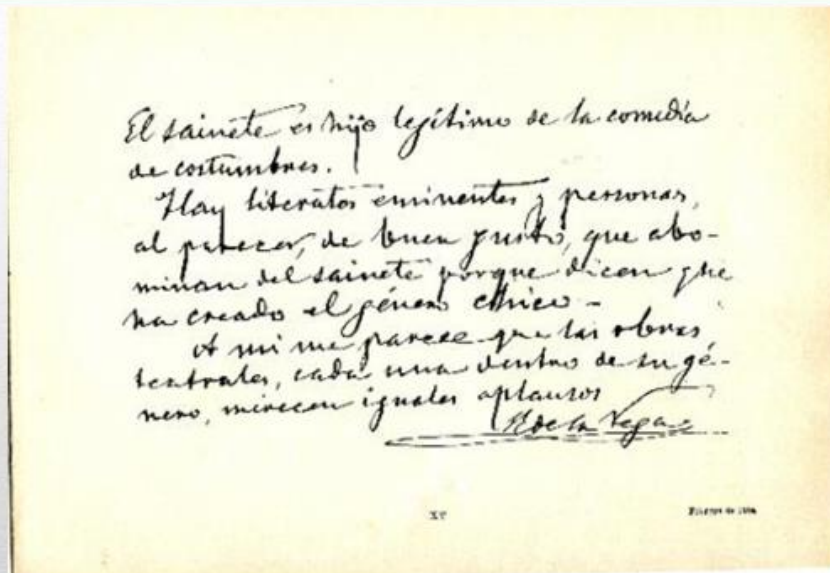 El sainete es hijo legítimo de la comedia
de costumbres.
Hay literatos eminentes y personas,
al parecer, de buen gusto, que abo-
minan del sainete porque dicen que
ha creado el género chico -
A mi me parece que las obras
teatrales, cada una dentro de su gé-
nero, merecen iguales aplausos
R de la Vega
XV
de